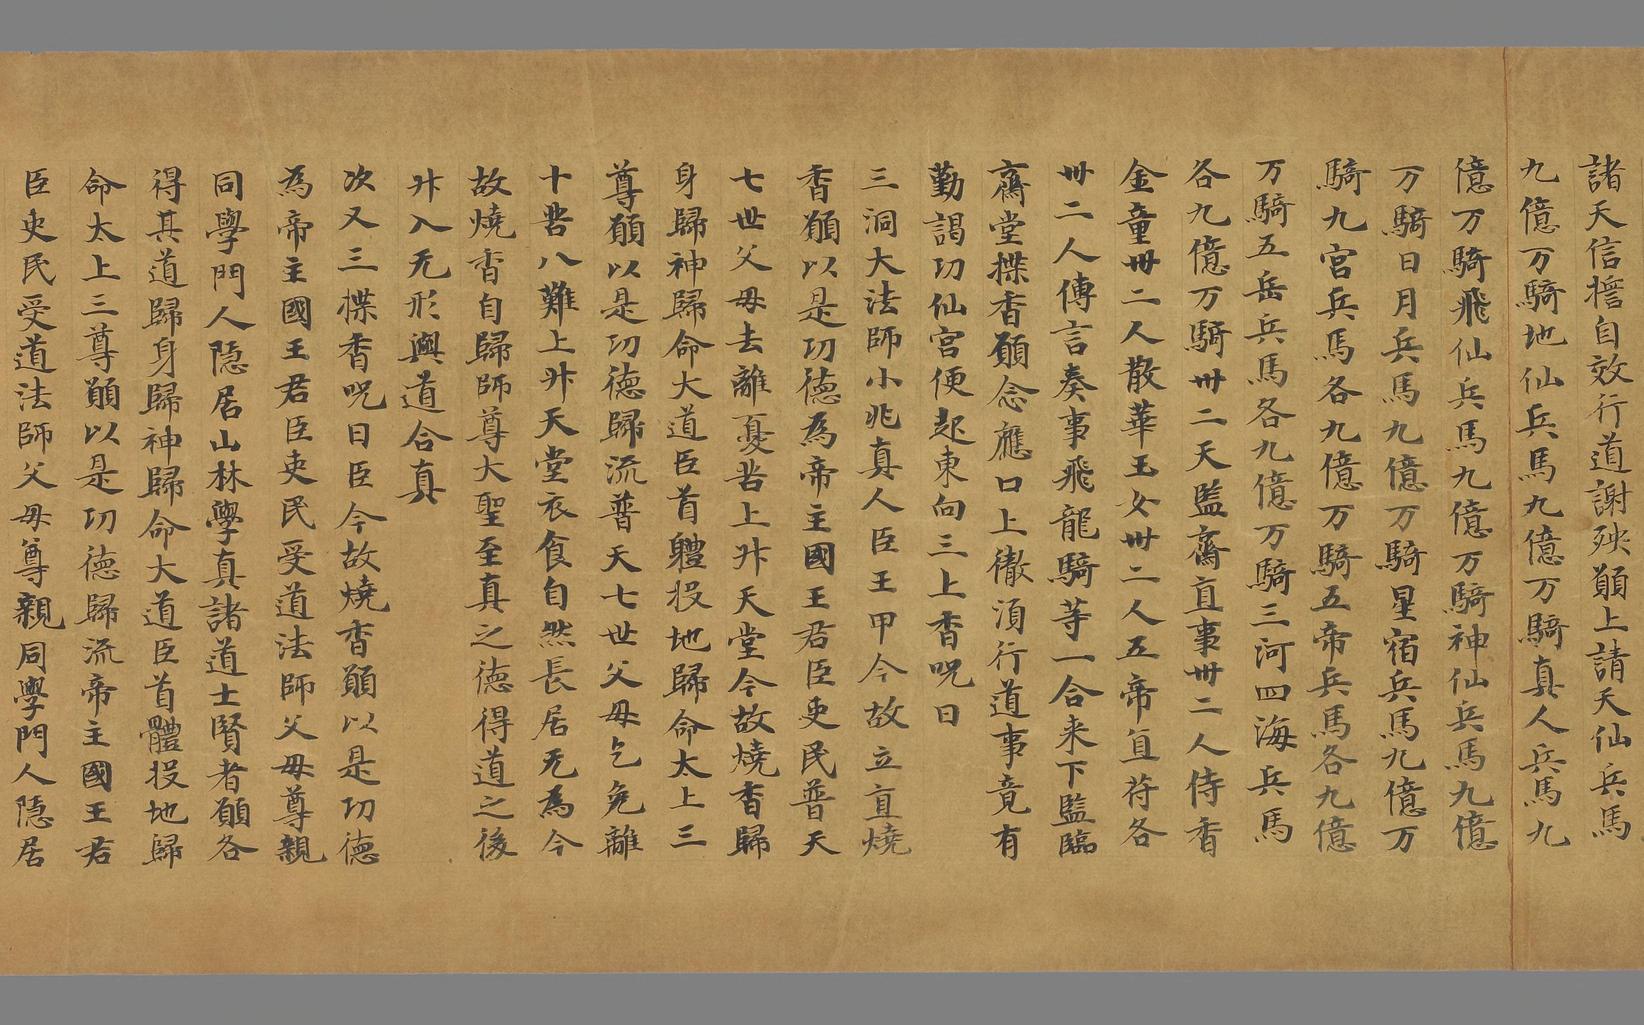 諸天信擔自效行道謝殃願上請天仙兵馬
九億万騎地仙兵馬九億万騎真人兵馬九
億万騎飛仙兵馬九億万騎神仙兵馬九億
万騎日月兵馬九億万騎星宿兵馬九億万
騎九宮兵馬各九億万騎五帝兵馬各九億
万騎五岳兵馬各九億万騎三河四海兵馬
各九億万騎卅二天監齋直事卅二人侍香
金童卅二人散華玉女卅二人五帝直符各
卅二人傳言奏事飛龍騎等一合来下監臨
齋堂揲香願念應口上徹湏行道事竟有
勤謁功仙宮便起東向三上香呪曰
三洞大法師小兆真人臣王甲今故立直燒
香願以是功德為帝主國王君臣吏民普天
七世父母去離憂苦上升天堂今故燒香歸
身歸神歸命大道臣首軆投地歸命太上三
尊願以是功德歸流普天七世父母乞免離
十苦八難上升天堂衣食自然長居无為今
故燒香自歸師尊大聖至真之德得道之後
升入无形與道合真
次又三揲香呪曰臣今故燒香願以是功德
為帝主國王君臣吏民受道法師父母尊親
同學門人隱居山林學真諸道士賢者願各
得其道歸身歸神歸命大道臣首體投地歸
命太上三尊願以是功德歸流帝主國王君
臣吏民受道法師父母尊親同學門人隱居